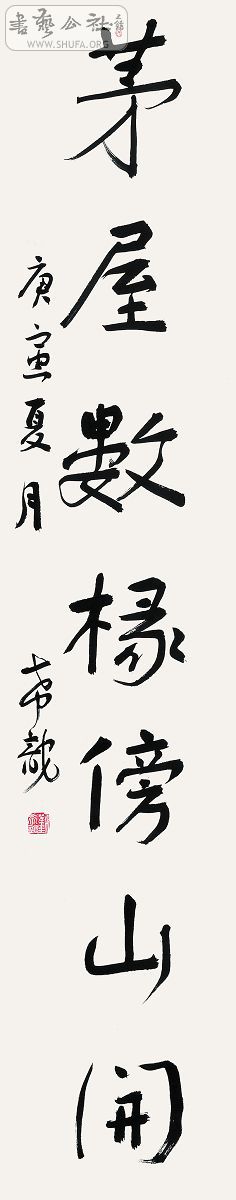 書藝公社
WWW.SHUFA.ORG
茅屋數椽傍山開
庚寅夏月